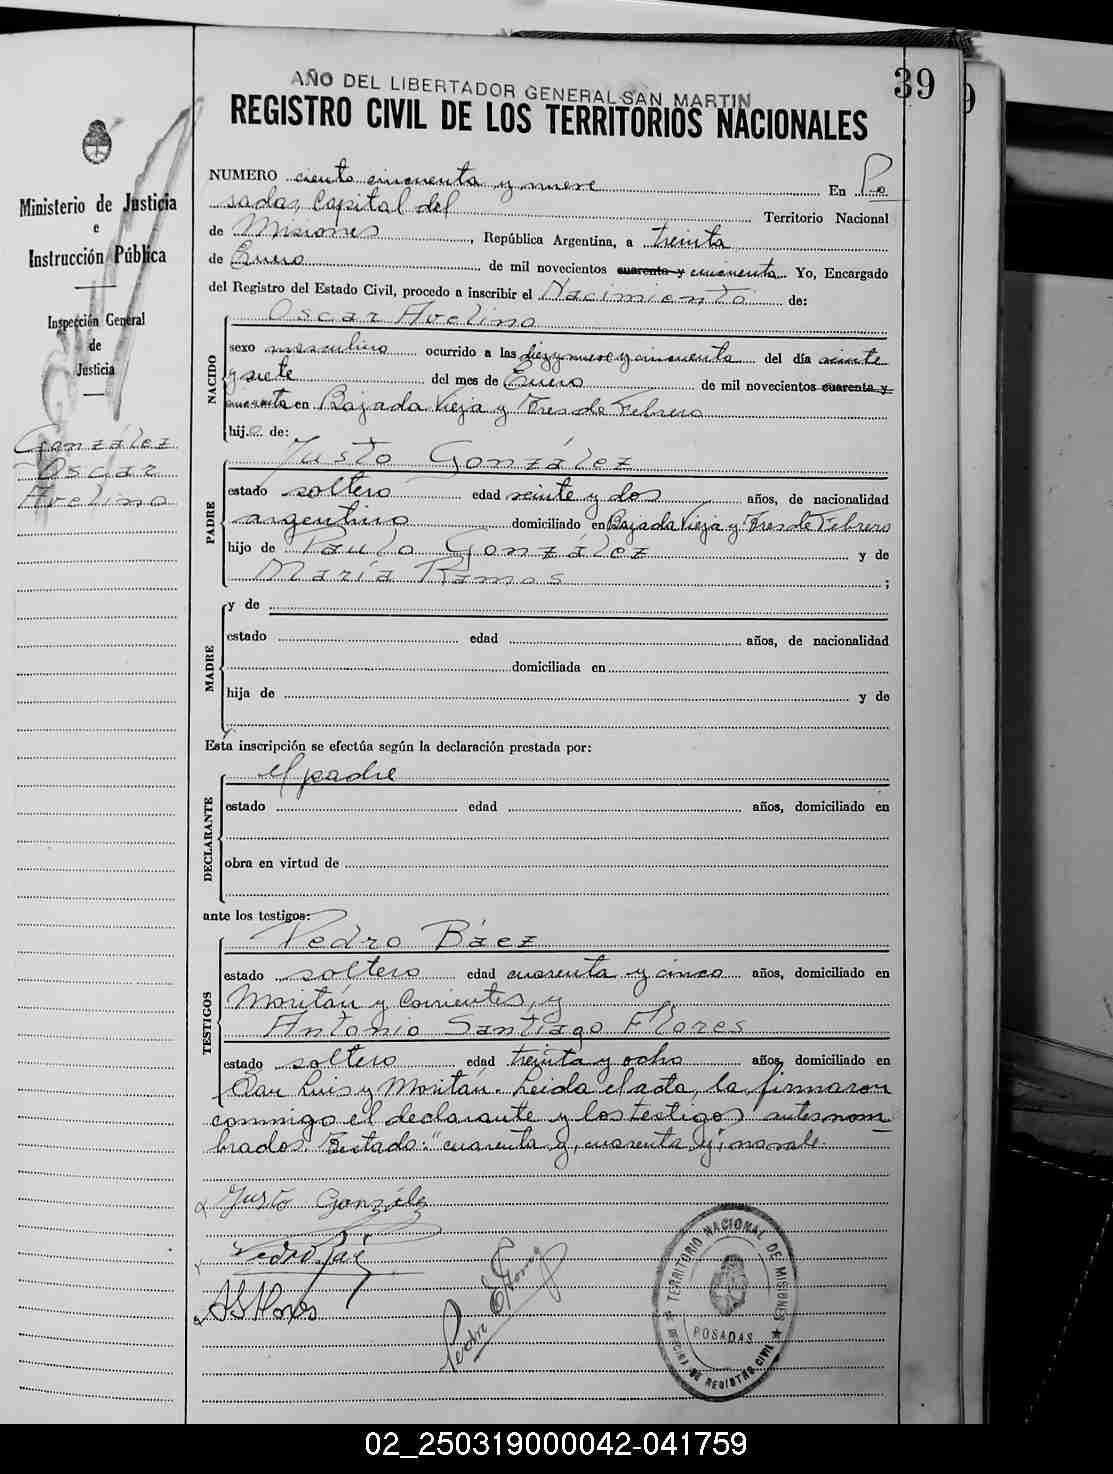 39
AÑO DEL LIBERTADOR GENERAL SAN MARTIN
REGISTRO CIVIL DE LOS TERRITORIOS NACIONALES
Ministerio de Justicia
e
Instrucción Pública
Inspección General
de
Justicia
González
Oscar
Avelino
NUMERO ciento cincuenta y nueve En Po
sadas, Capital del Territorio Nacional
de Misiones, República Argentina, a treinta
de Enero de mil novecientos cuarenta y cincuenta. Yo, Encargado
del Registro del Estado Civil, procedo a inscribir el Nacimiento de:
NACIDO
Oscar Avelino
sexo masculino ocurrido a las diez y nueve y cincuenta del día veinte
y siete del mes de Enero de mil novecientos cuarenta y
cincuenta en Bajada Vieja y Tres de Febrero
hijo de:
PADRE
Justo González
estado soltero edad veinte y dos años, de nacionalidad
argentino domiciliado en Bajada Vieja y Tres de Febrero
hijo de Paulo González y de
María Ramos ;
MADRE
y de
estado edad años, de nacionalidad
domiciliada en
hija de y de
Esta inscripción se efectúa según la declaración prestada por:
DECLARANTE
el padre
estado edad años, domiciliado en
obra en virtud de
ante los testigos:
TESTIGOS
Pedro Báez
estado soltero edad cuarenta y cinco años, domiciliado en
Moritán y Corrientes, y
Antonio Santiago Flores
estado soltero edad treinta y ocho años, domiciliado en
San Luis y Moritán. Leida el acta, la firmaron
conmigo el declarante y los testigos antes nom
brados. Testado: "cuarenta y, cuarenta y", no vale.
Justo González
Pedro Báe
A S Flores
Pedro
TERRITORIO NACIONAL DE MISIONES
POSADAS
DE REGISTRO CIVIL
02_250319000042-041759